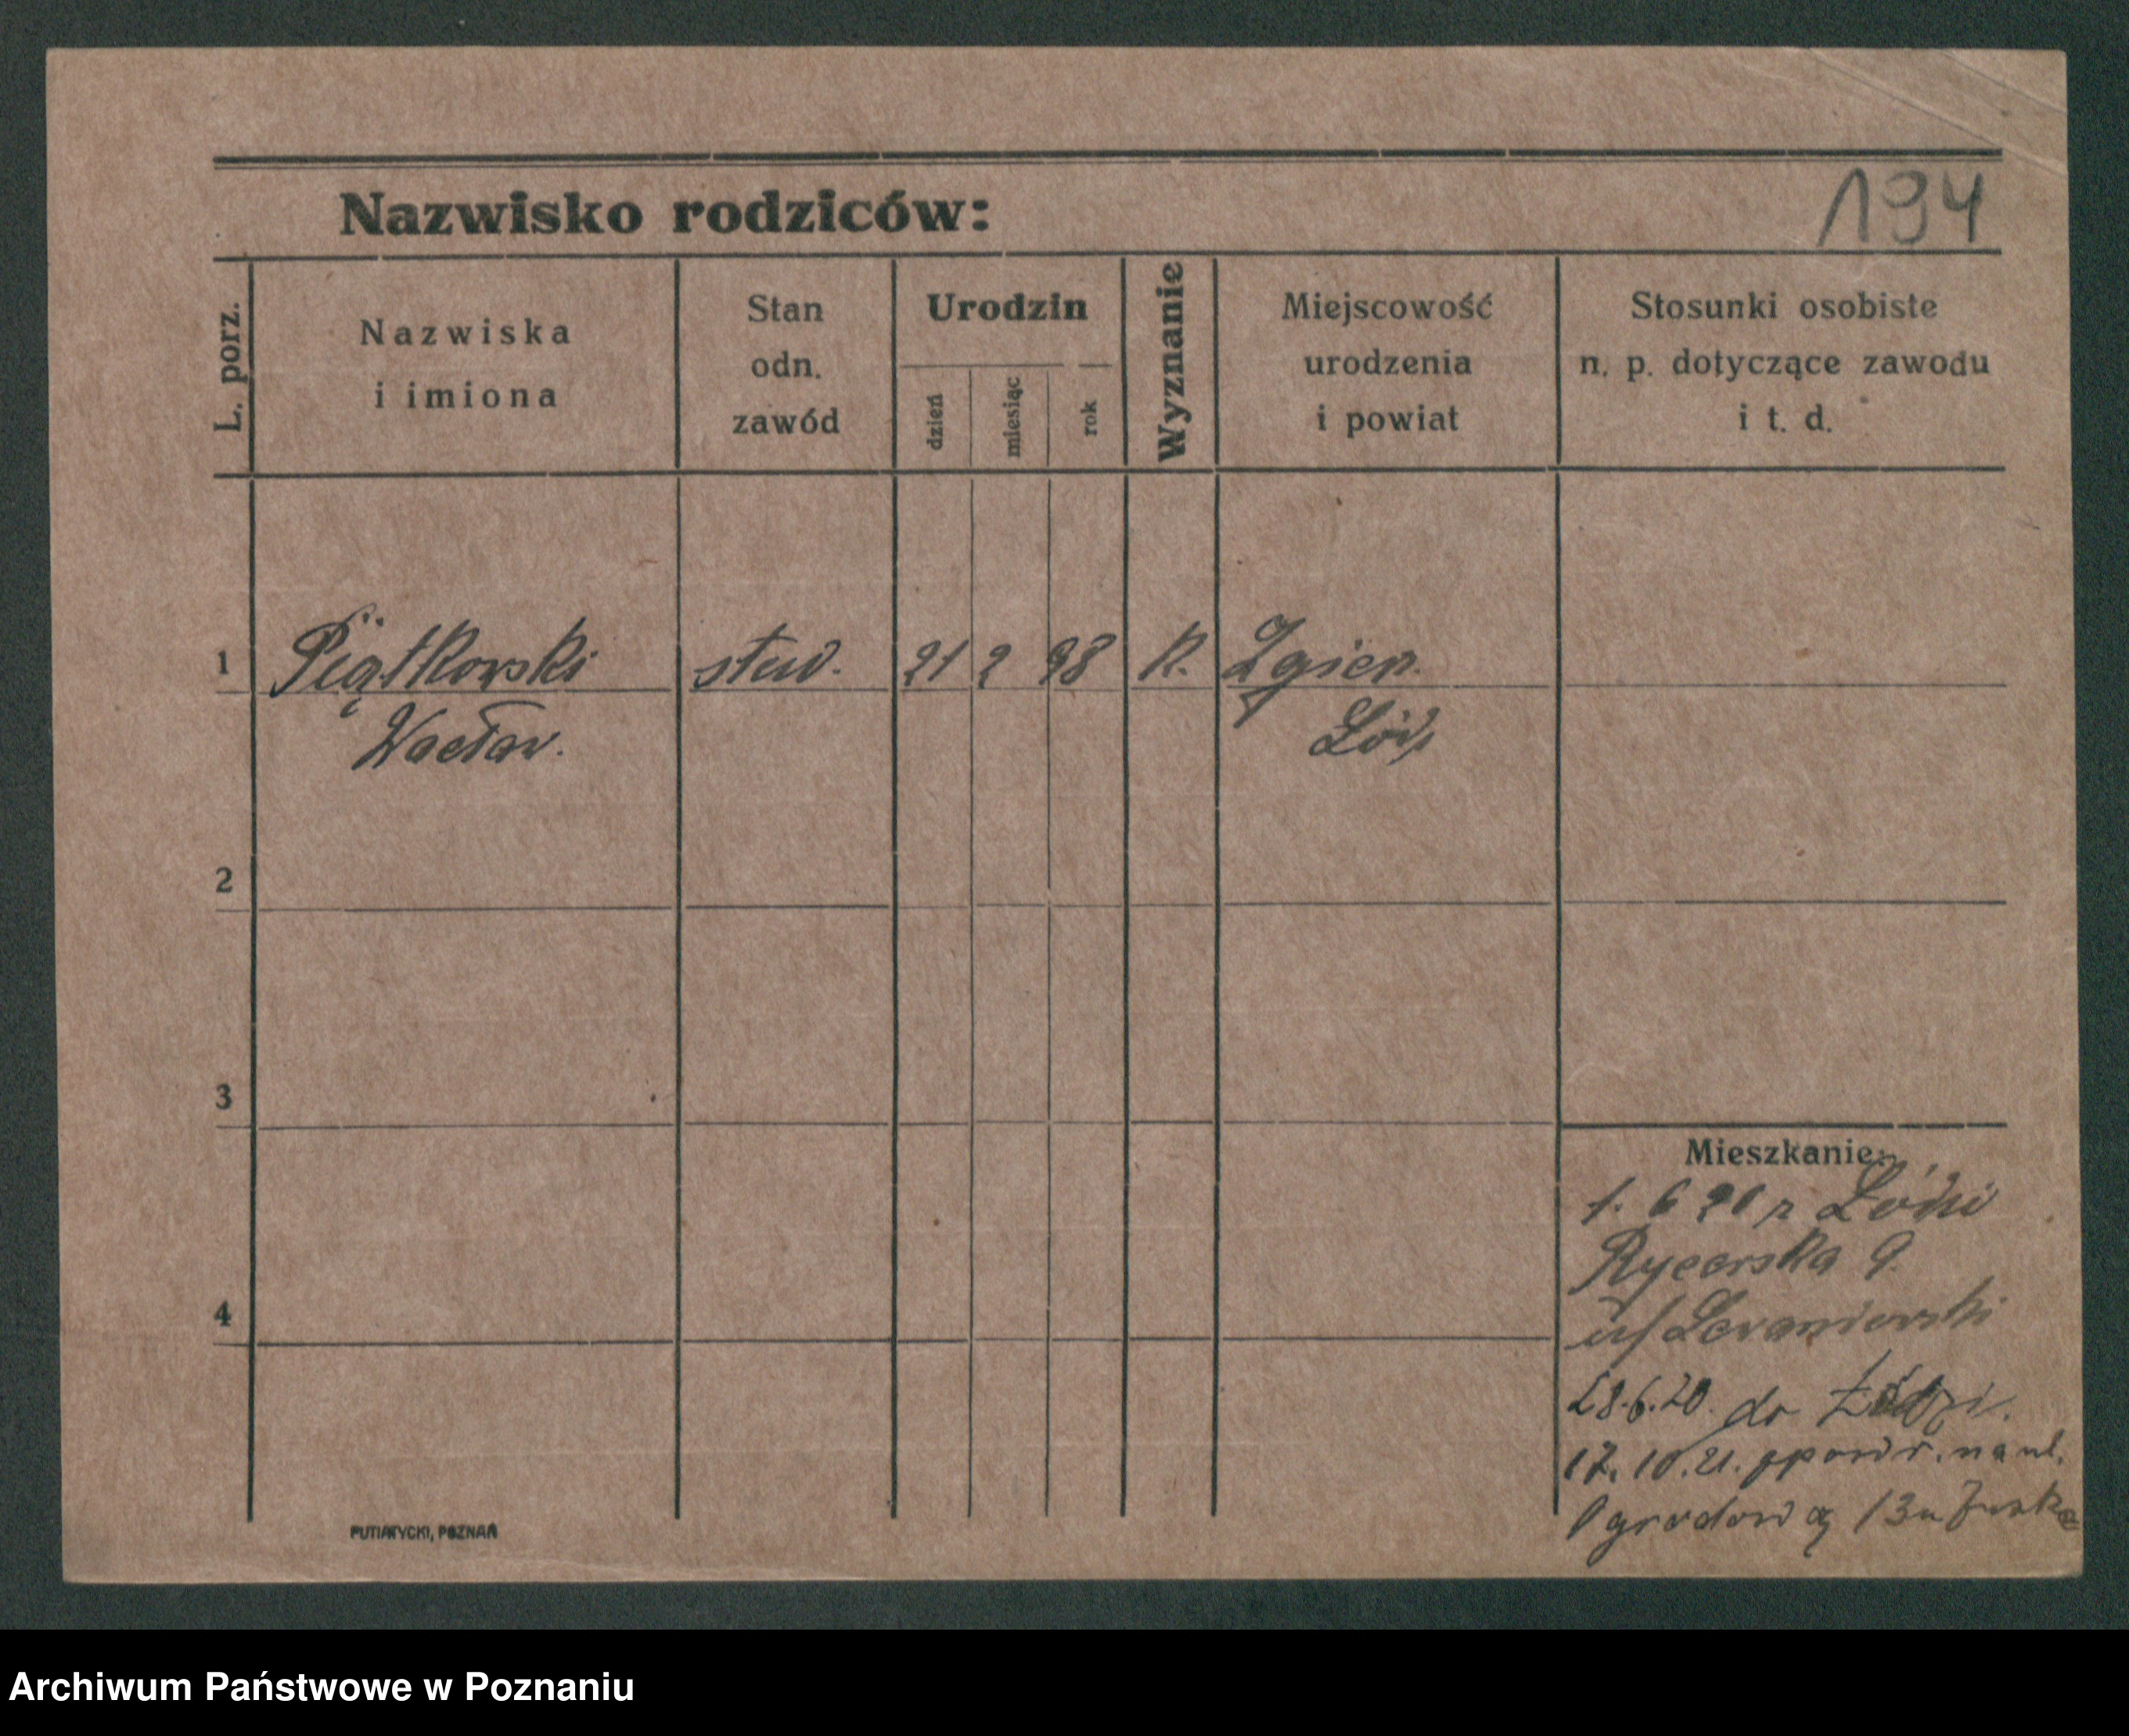 194
Nazwisko rodziców:
L. porz.
Nazwiska
i imiona
Stan
odn.
zawód
Urodzin
dzień
miesiąc
rok
Wyznanie
Miejscowość
urodzenia
i powiat
Stosunki osobiste
n. p. dotyczące zawodu
i t. d.
1 Piątkowski stud. 21 2 98 K. Zgierz.
Wacław. Łódź
2
3
4
Mieszkanie:
1. 6 20 z Łodzi
Rycerska 9.
28.6.20. do Łodzi.
17.10.21. na ul.
Ogrodową 13 u
PUTIATYCKI, POZNAŃ
Archiwum Państwowe w Poznaniu